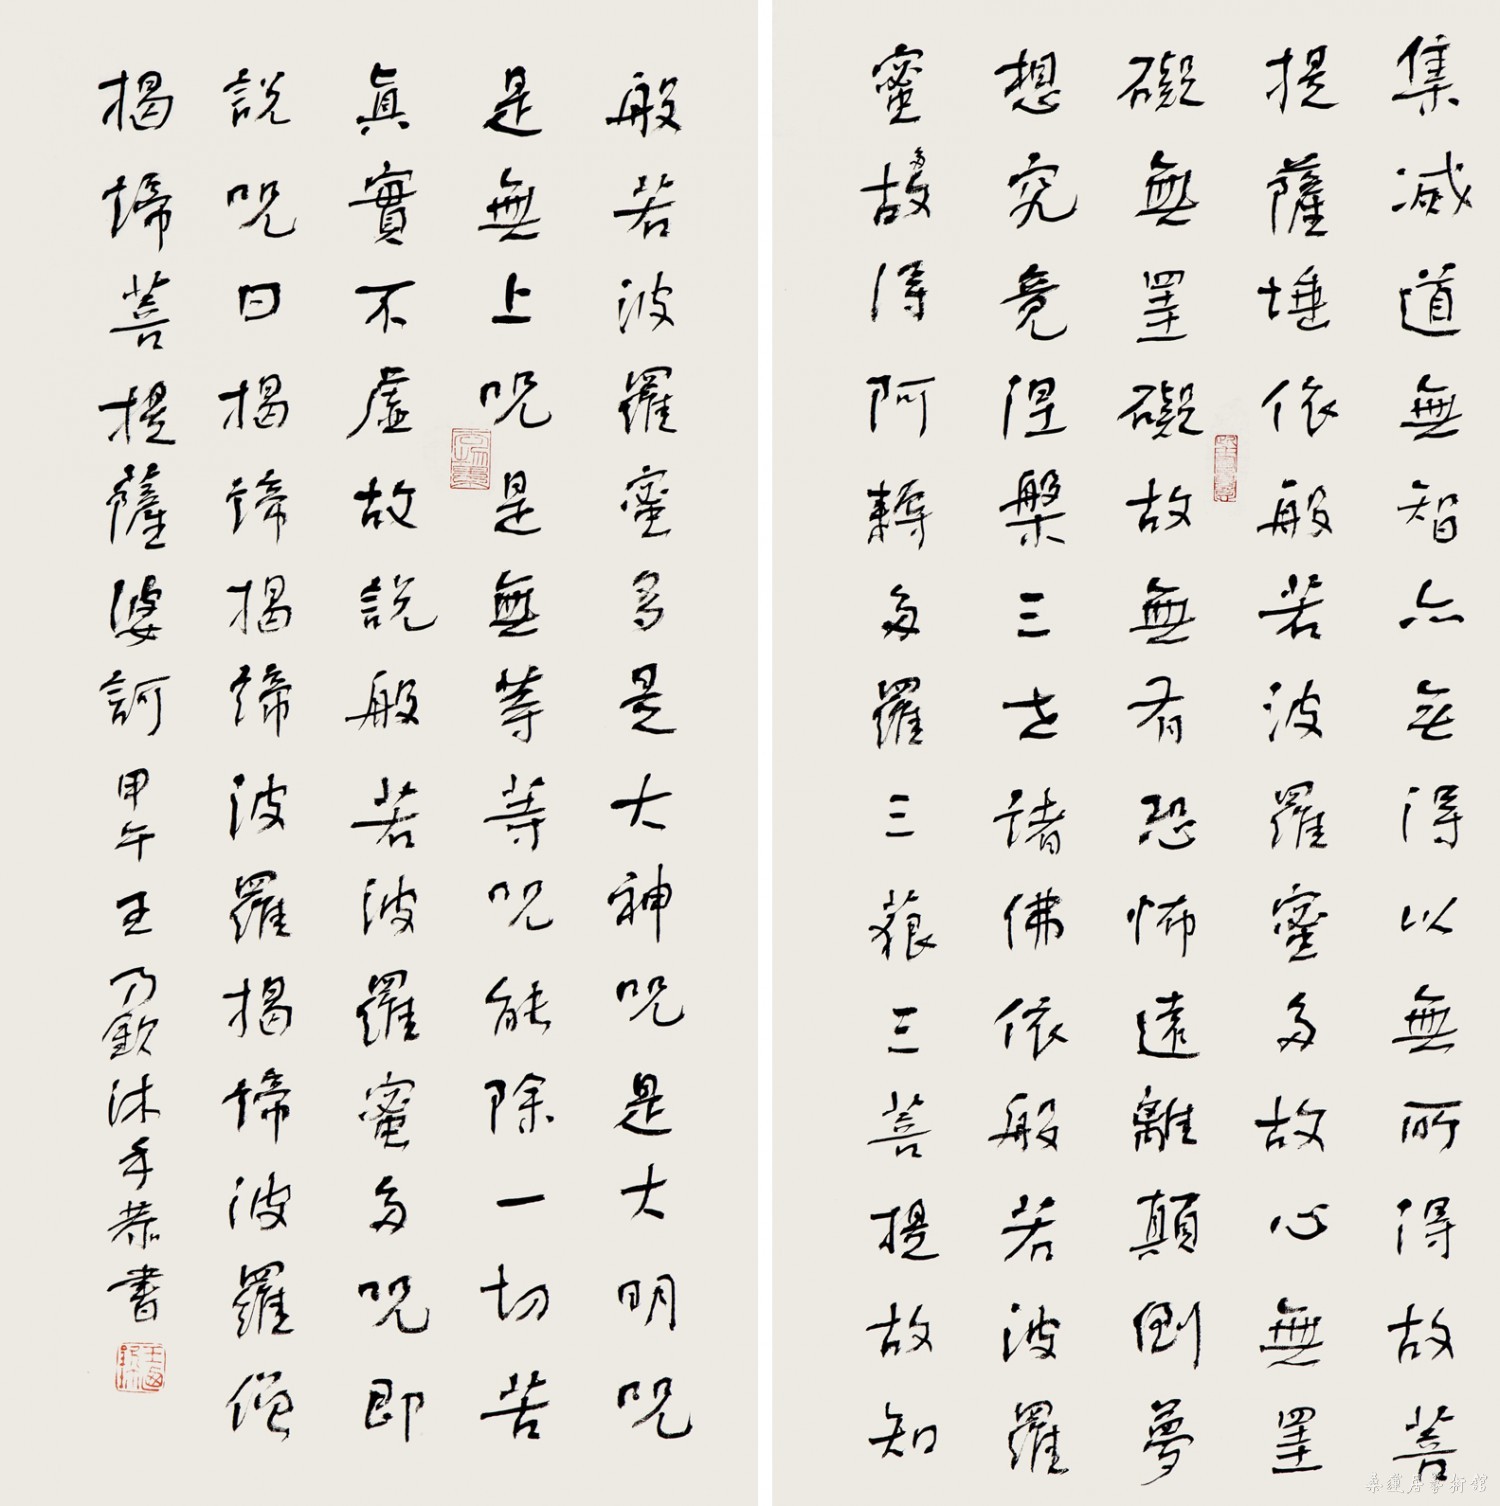 集滅道無智亦无得以無所得故菩
提薩埵依般若波羅蜜多故心無罣
礙無罣礙故無有恐怖遠離顛倒夢
想究竟涅槃三世諸佛依般若波羅
蜜多故得阿耨多羅三藐三菩提故知
般若波羅蜜多是大神呪是大明呪
是無上呪是無等等呪能除一切苦
眞實不虛故說般若波羅蜜多呪即
說呪曰揭諦揭諦波羅揭諦波羅僧
揭諦菩提薩婆訶 甲午王乃欽沐手恭書
桑蓮居藝術館